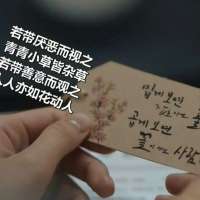 若带厌恶而视之
青青小草皆杂草
若带善意而观之
人人亦如花动人
밉게 보면
곱게 보면
꽃 사람